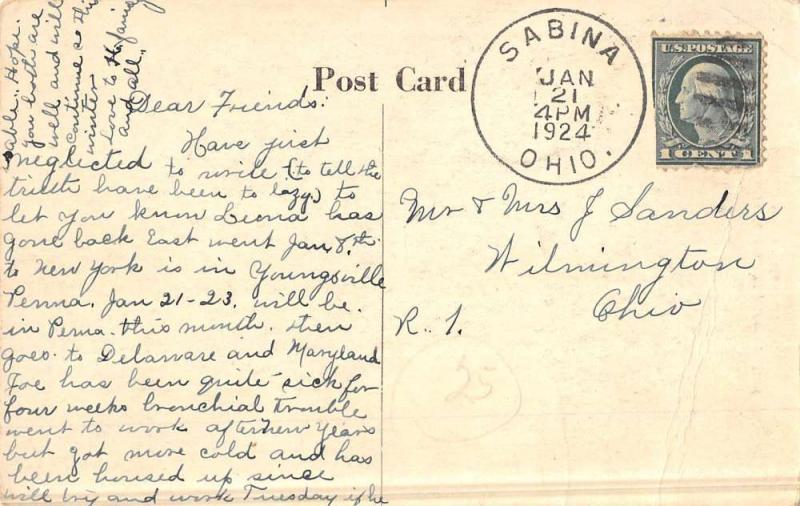 Post Card
SABINA
JAN
21
4PM
1924
OHIO.
U.S. POSTAGE
1 CENT 1
Dear Friends:
Have just
neglected to write (to tell the
truth have been to lazy) to
let you know Leona has
gone back East went Jan 8th
to New York is in Youngsville
Penna. Jan 21-23. will be
in Penna. this month. then
goes to Delaware and Maryland
Joe has been quite sick for
four weeks bronchial trouble
went to work after New Years
but got more cold and has
been housed up since
will try and work Tuesday if he
able. Hope
you both are
well and will
continue so this
winter.
Love to
and all.
Mr & Mrs J Sanders
Wilmington
Ohio
R. 1.
25